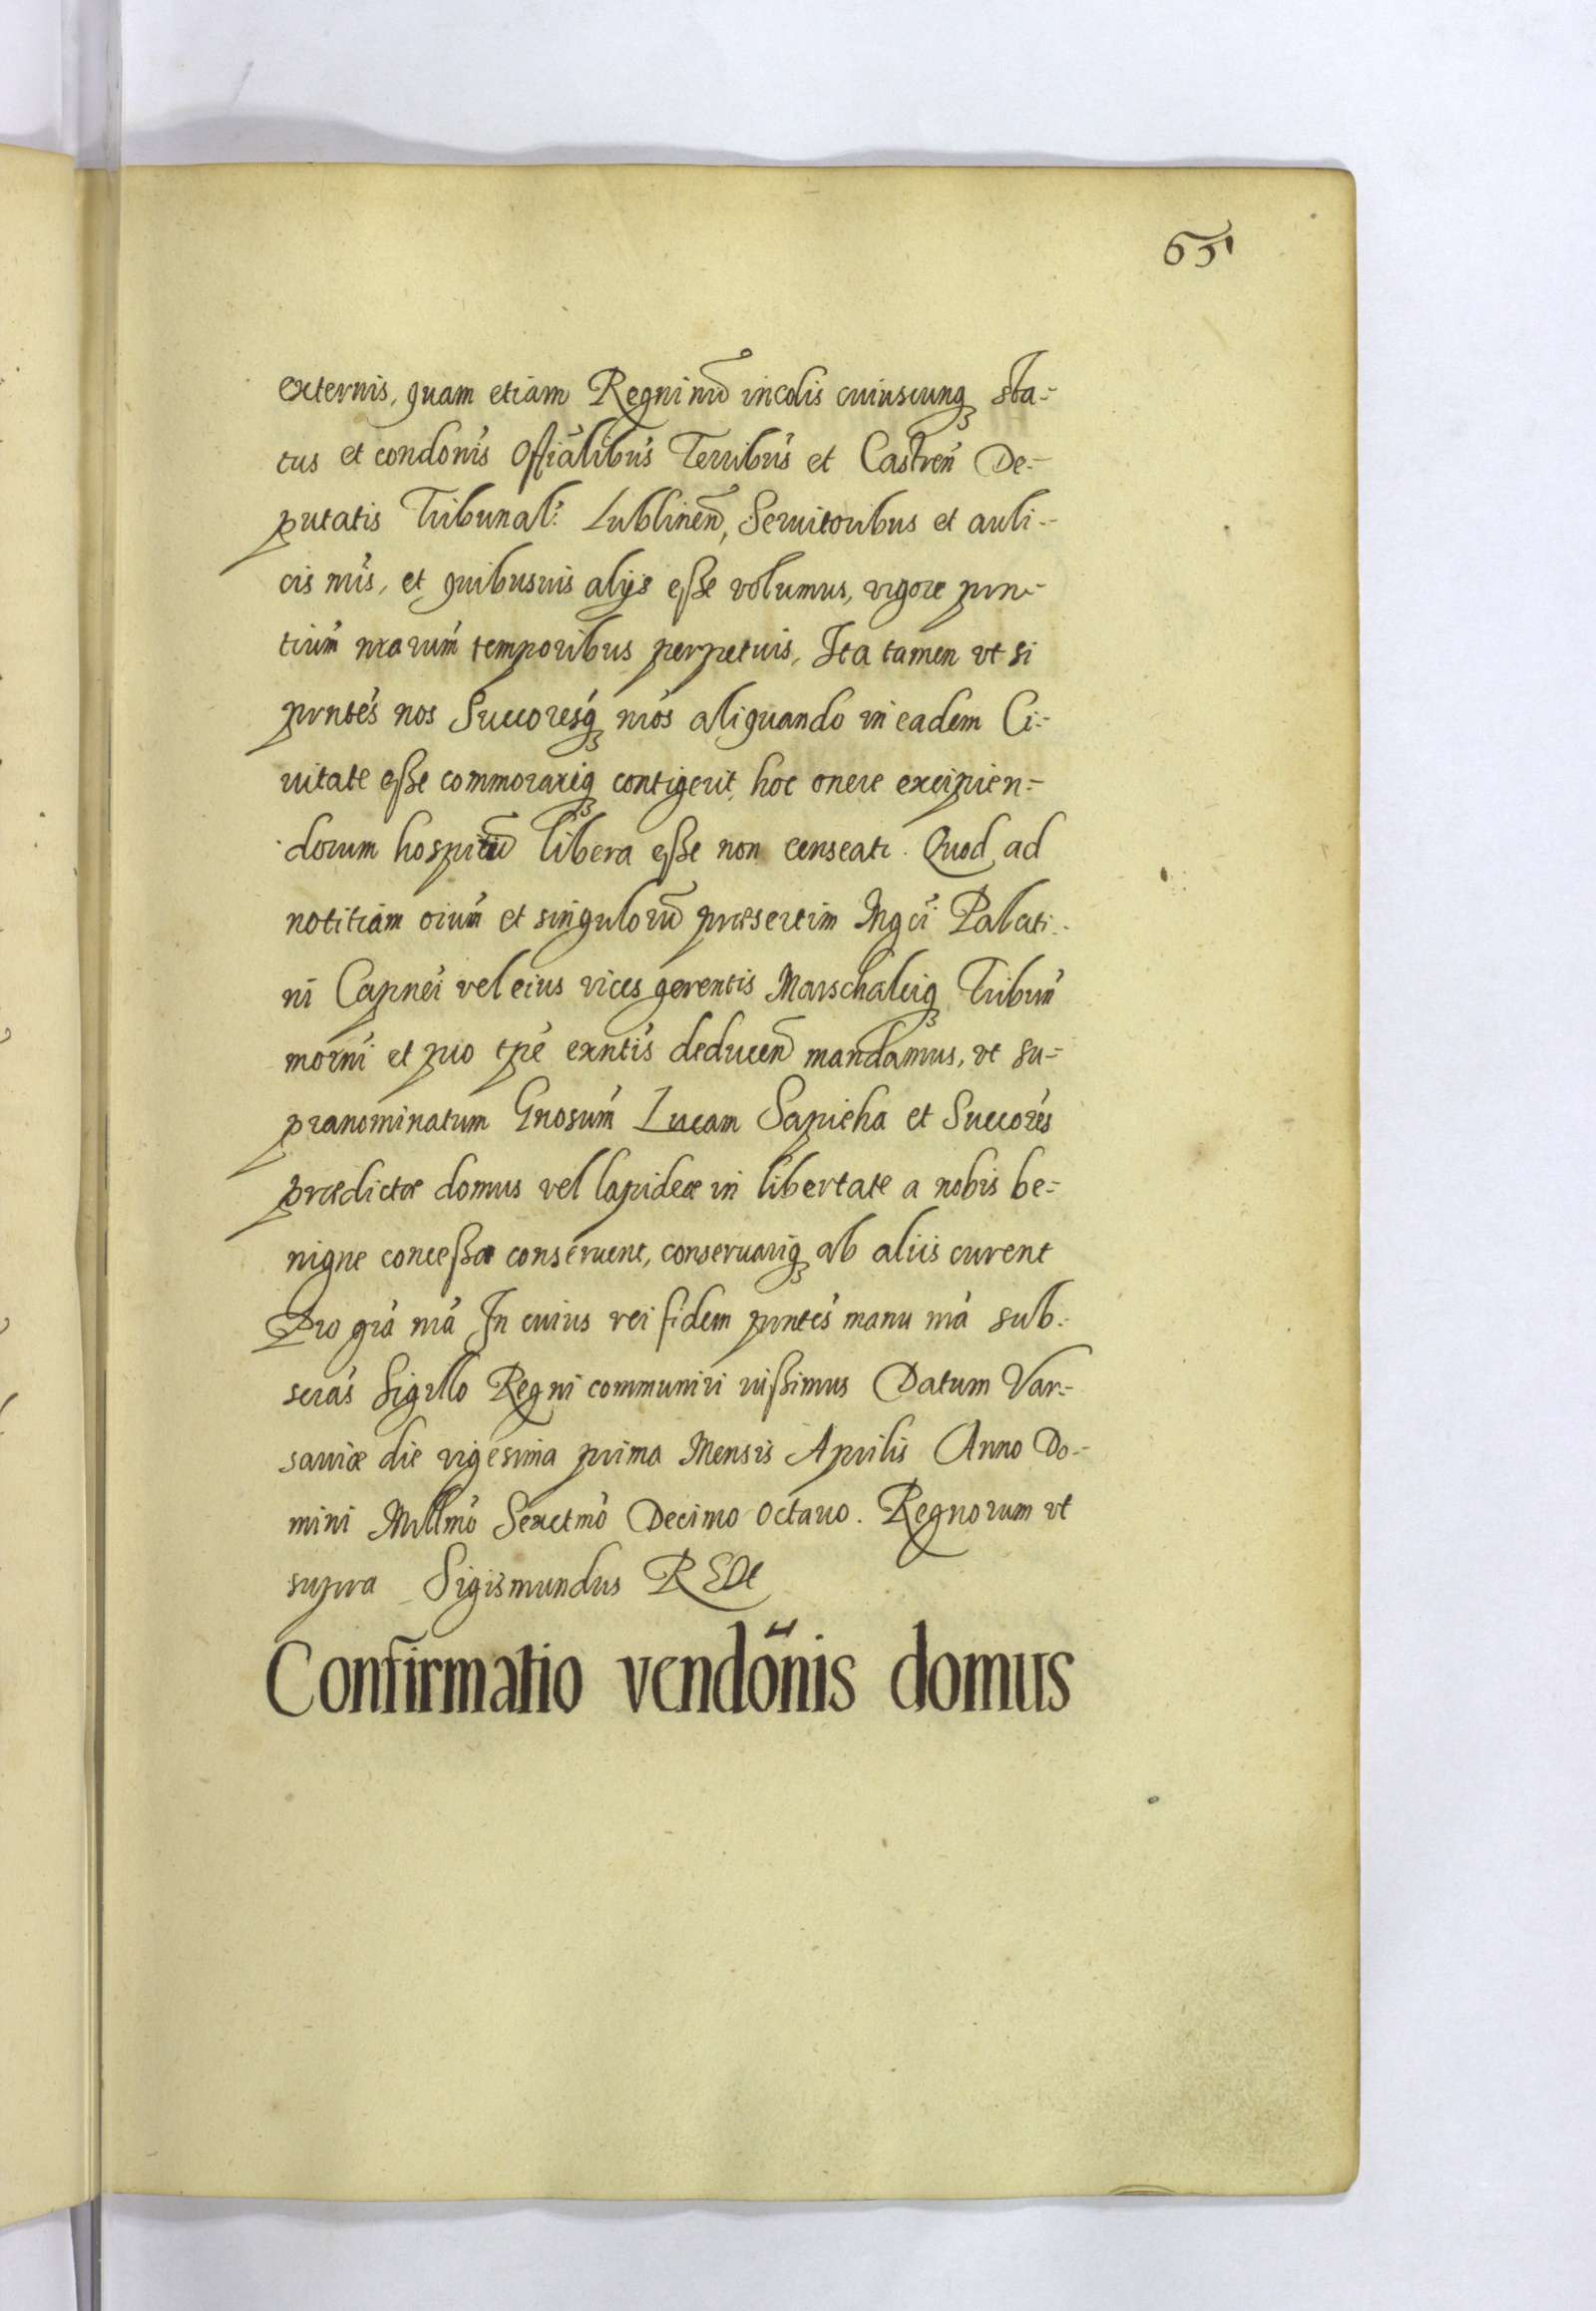 65
externis, quam etiam Regni nrı̃ incolis cuiuscunqꝫ sta=
tus et condonı̃s Offiãlibus̃ Terribus̃ et Castreñ De=
putatis Tribunal: Lublineñ, Seruitoribus et auli=
cis nrı̃s, et quibusuis alijs eße volumus, vigore prñ=
tium̃ nrarum̃ temporibus perpetuis, Ita tamen vt si
prntes̃ nos Succoresq̃ꝫ nros̃ aliquando in eadem Ci=
uitate eße commorariqꝫ contigerit, hoc onere excipien=
dorum hospitũ libera eße non censeatr. Quod ad
notitiam oium̃ et singulorũ præsertim Mgcı̃ Palati=
ni Capneı̃ vel eius vices gerentis Marschalciqꝫ Tribuñ
mornı̃ et pro tpẽ exntis̃ deduceñ mandamus, vt su=
pranominatum Gnosum̃ Lucam Sapieha et Succores̃
prædictæ domus vel lapideæ in libertate a nobis be=
nigne conceßa conseruent, conseruariqꝫ ab aliis curent
Pro grã nrã In cuius rei fidem prntes̃ manu nrã sub=
scras̃ Sigillo Regni communiri iußimus Datum Var=
sauiæ die vigesima prima Mensis Aprilis Anno Do=
mini Millmõ Sexctmõ Decimo Octauo. Regnorum vt
supra Sigismundus REX
Confirmatio vendõnis domus